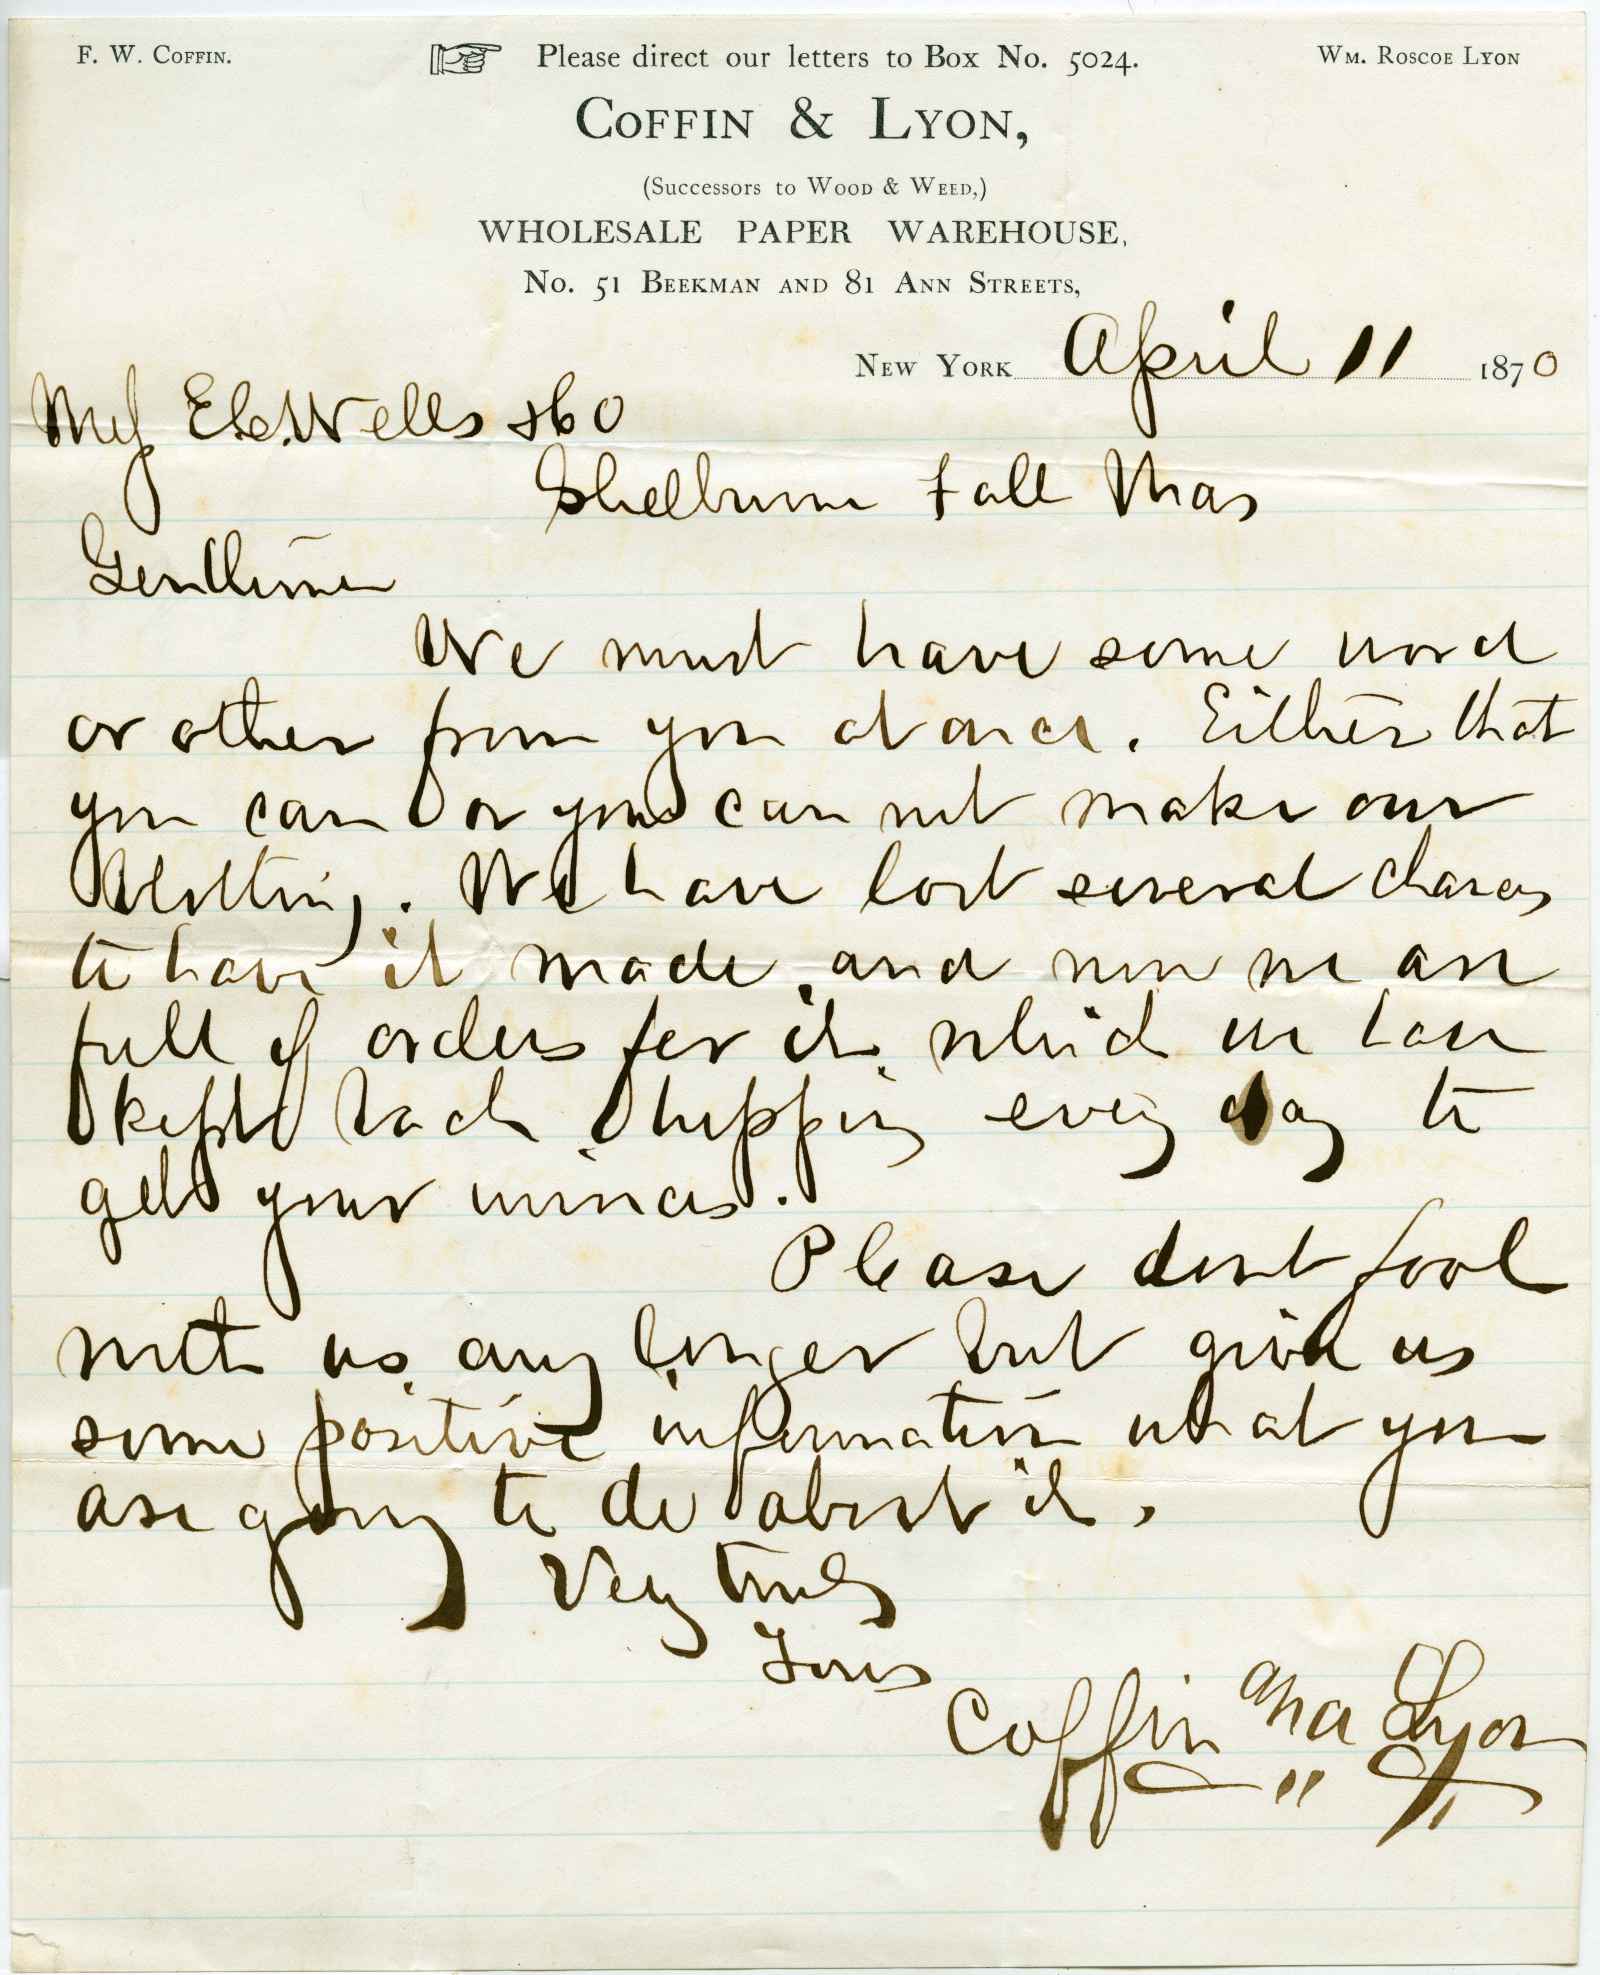 F. W. COFFIN. Please direct our letters to Box No. 5024. WM. ROSCOE LYON
COFFIN & LYON,
(Successors to WOOD & WEED,)
WHOLESALE PAPER WAREHOUSE,
No. 51 BEEKMAN AND 81 ANN STREETS,
NEW YORK April 11 1870
Wells & Co
Shelburne Fall Mas
Gentlemen
We must have some word
or other from you at once. Either that
you can or you can not make our
Blotting. We have lost several chances
to have it made, and now we are
full of orders for it, which we have
kept back shipping every day to
get your
Please dont fool
with us any longer but give us
some positive information what you
are going to do about it.
Very truly
Yours
Coffin and Lyon